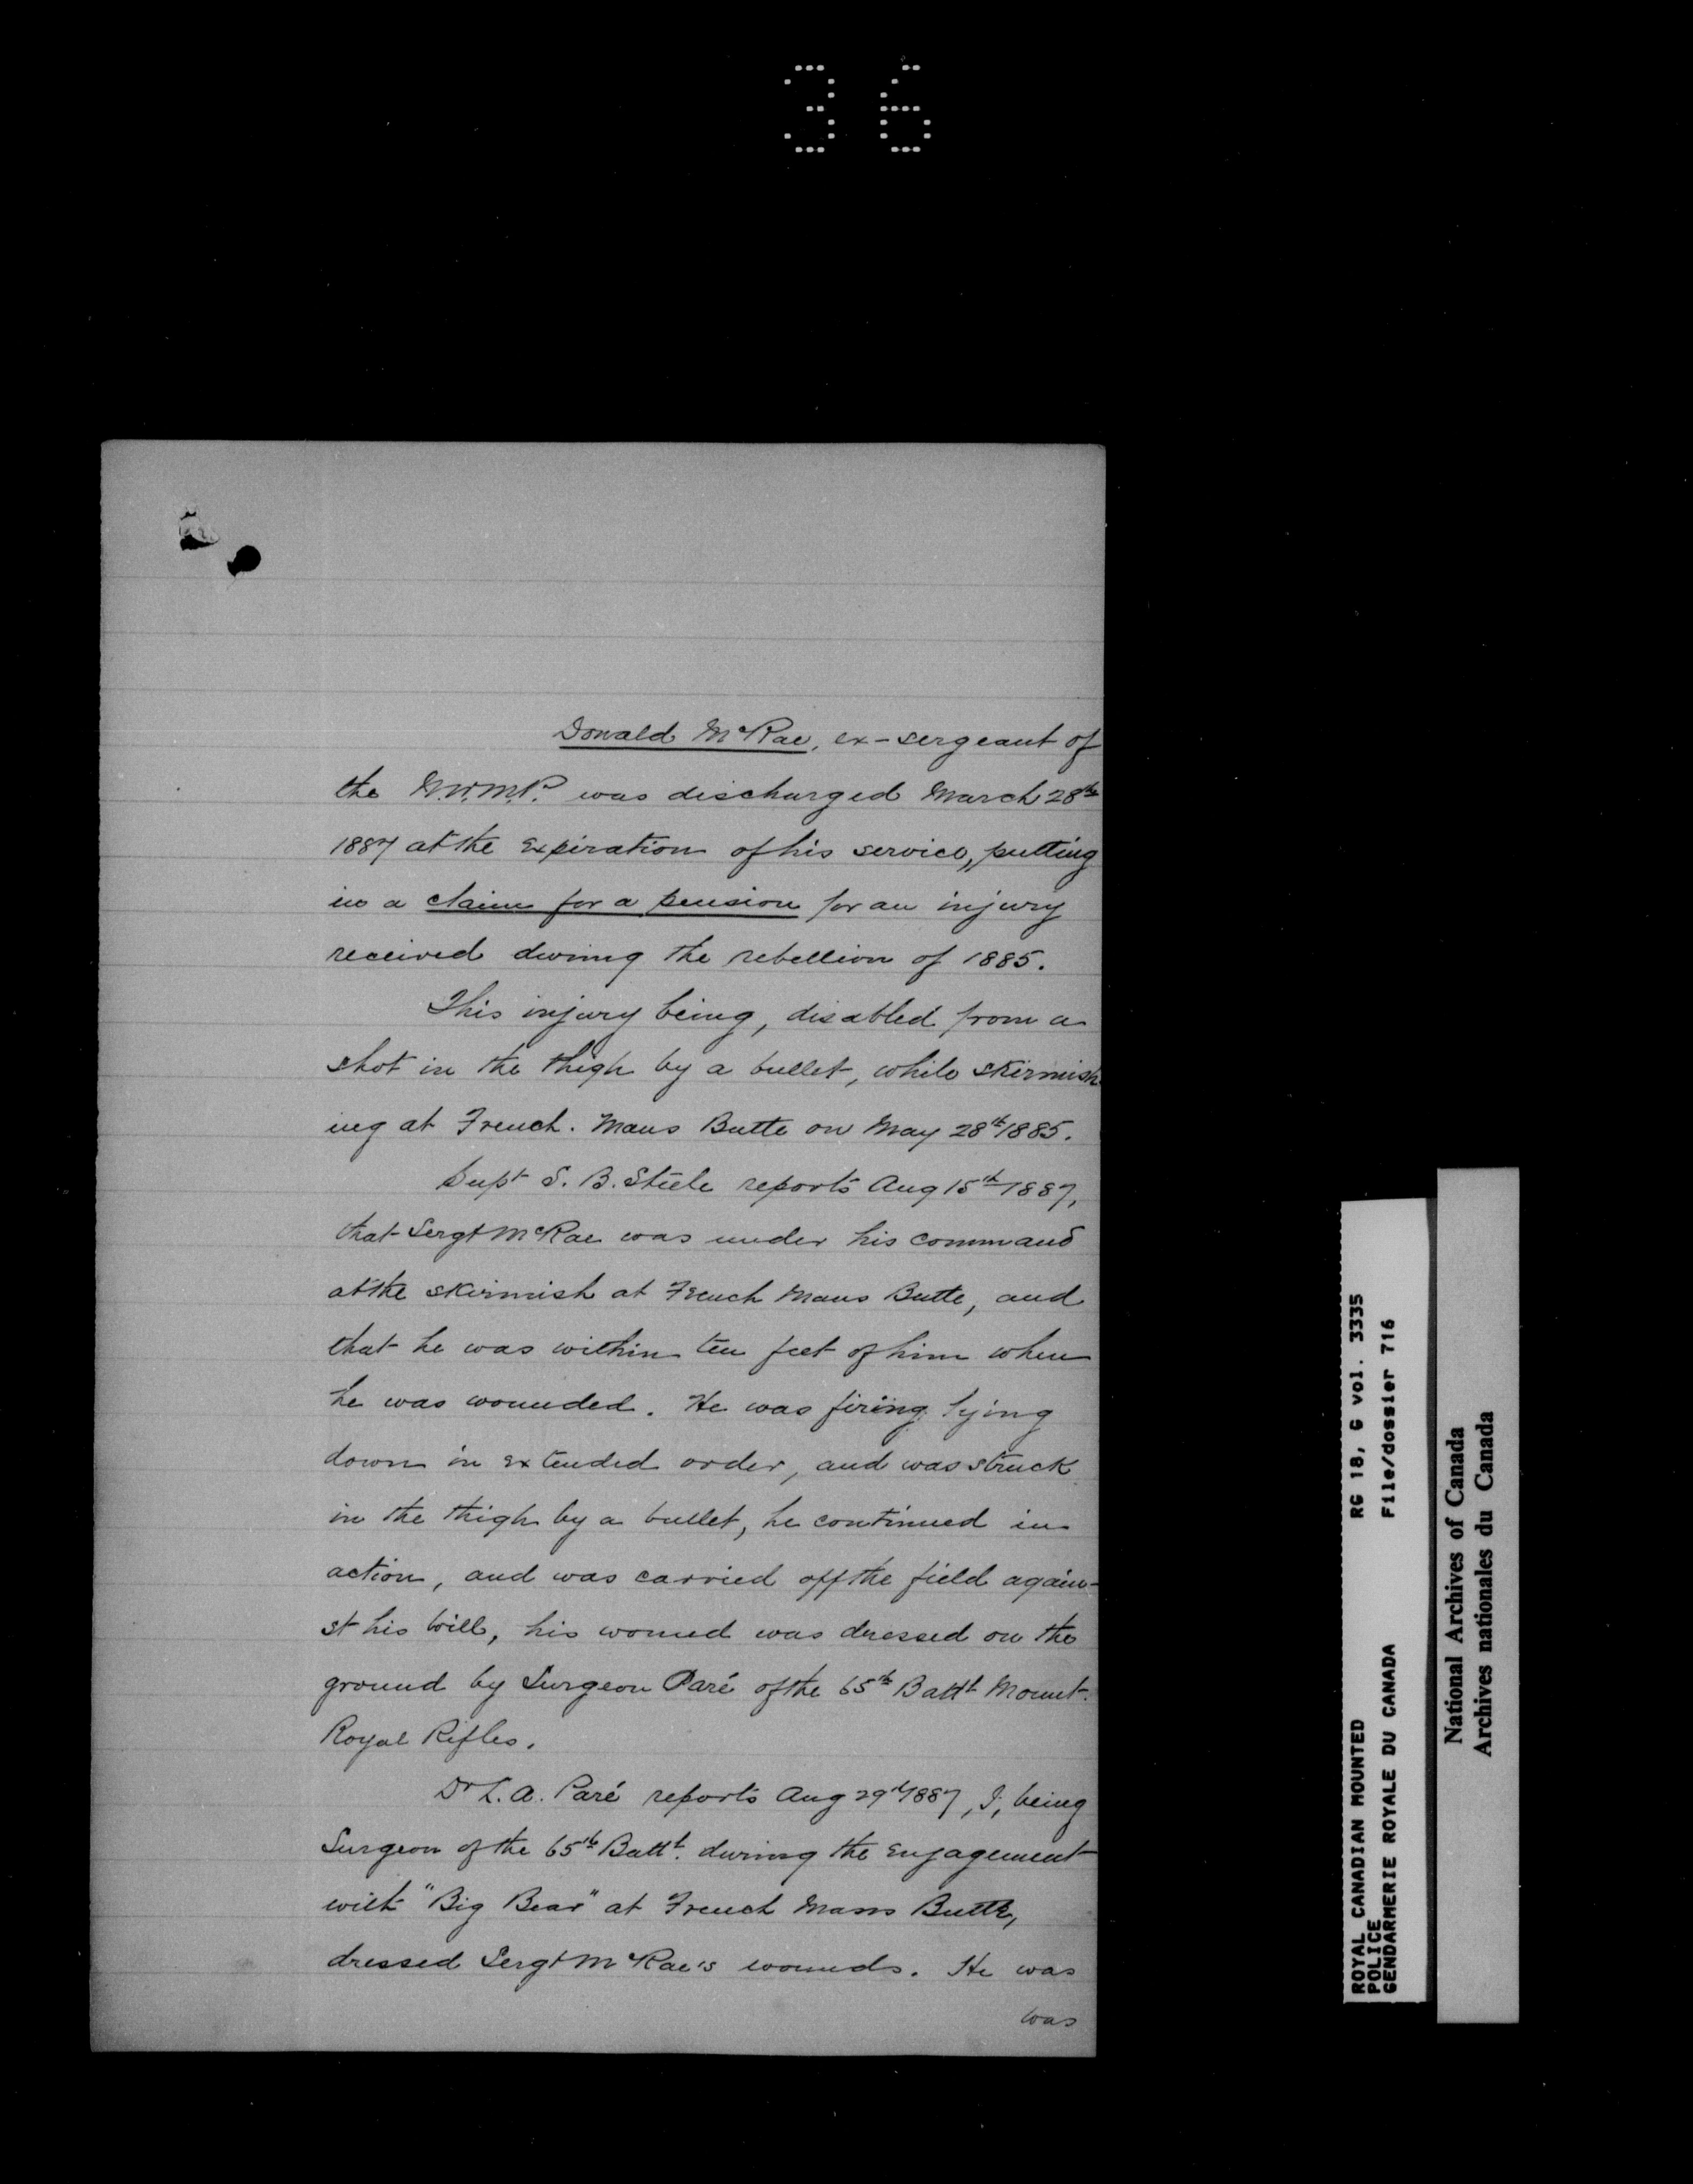 36
Donald McRae, ex-sergeant of
the N.W.M.P. was discharged March 28th
1887 at the expiration of his service, putting
in a claim for a pension for an injury
received during the rebellion of 1885.
This injury being, disabled from a
shot in the thigh by a bullet, while skirmish
ing at French. Mans Butte on May 28th 1885.
Supt S. B. Steele reports Aug 15th 1887,
that Sergt McRae was under his command
at the skirmish at French Mans Butte, and
that he was within ten feet of him when
he was wounded. He was firing lying
down in extended order, and was struck
in the thigh by a bullet, he continued in
action, and was carried off the field again-
st his will, his wound was dressed on the
ground by Surgeon Paré of the 65th Batt. Mount-
Royal Rifles.
Dr L. A. Paré reports Aug 29th 1887, I, being
Surgeon of the 65th Batt. during the engagement
with "Big Bear" at French Mans Butte,
dressed Sergt McRae's wounds. He was
was
ROYAL CANADIAN MOUNTED POLICE
GENDARMERIE ROYALE DU CANADA
RG 18, G vol. 3335
File/dossier 716
National Archives of Canada
Archives nationales du Canada